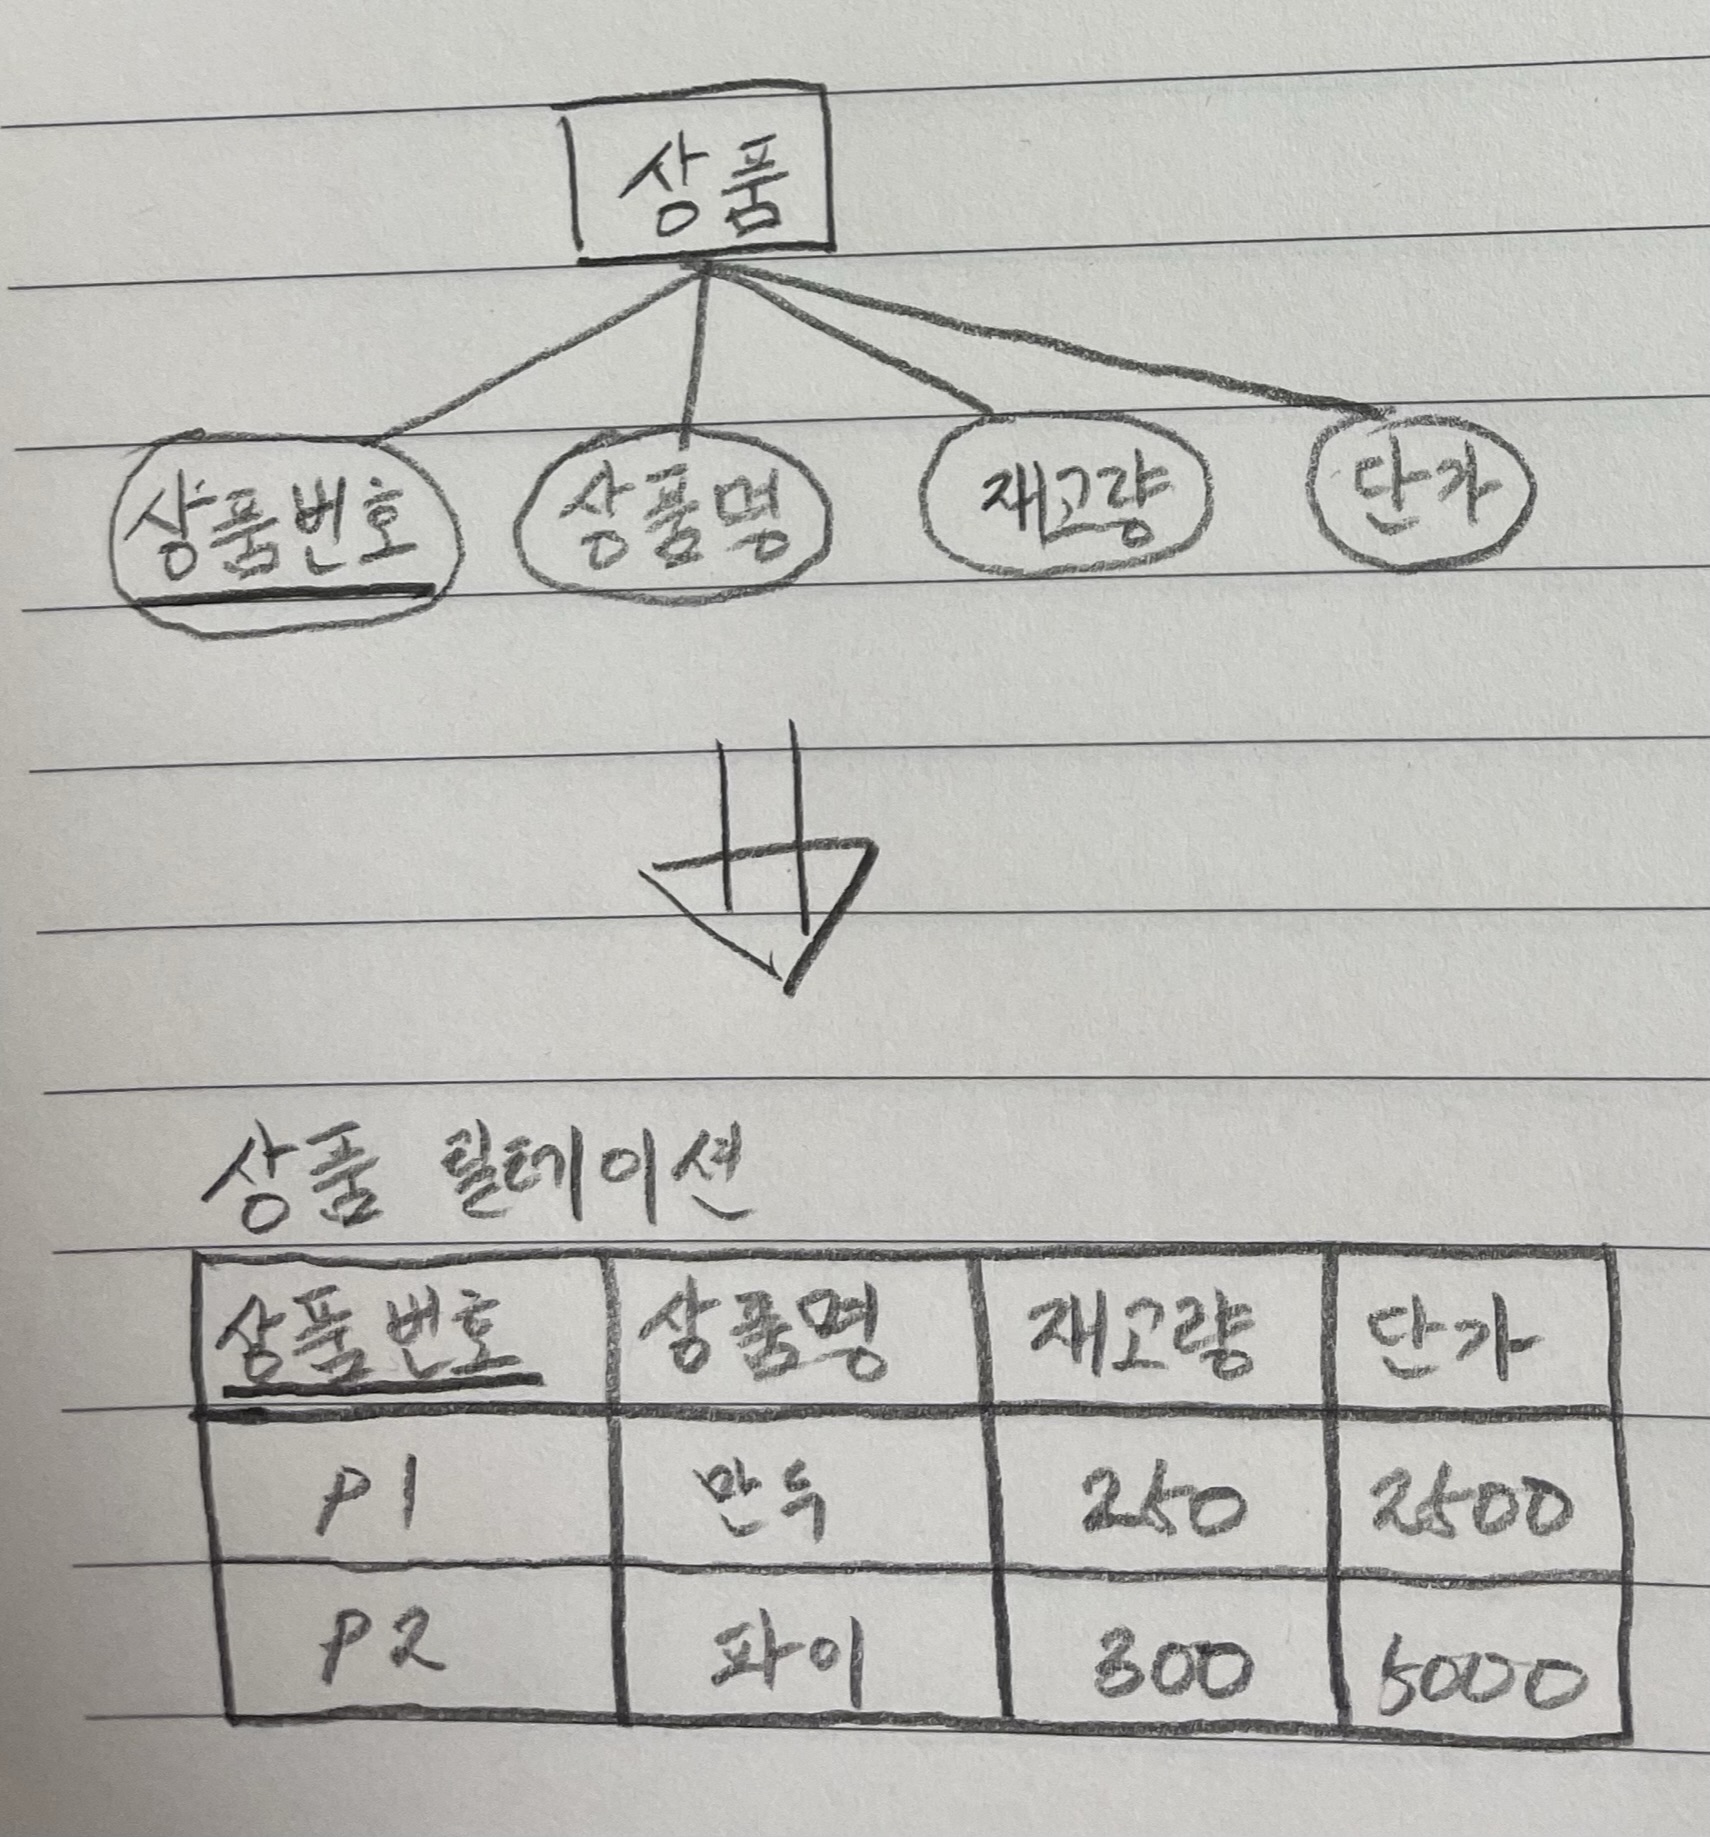 상품
상품번호 상품명 재고량 단가
상품 릴레이션
상품번호 상품명 재고량 단가
P1 만두 250 2500
P2 파이 300 5000